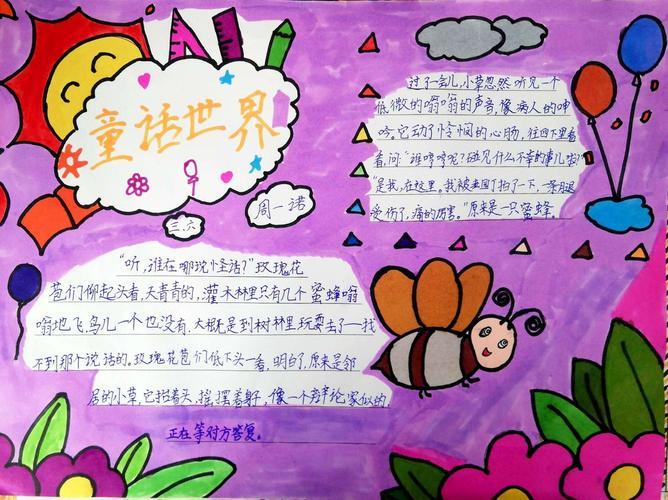 童话世界
三、六
周一诺
"听,谁在哪说怪话?"玫瑰花
苞们仰起头看,天青青的,灌木林里只有几个蜜蜂嗡
嗡地飞,鸟儿一个也没有,大概是到树林里玩耍去了一找
不到那个说话的,玫瑰花苞们低下头一看,明白了,原来是邻
居的小草,它抬着头,摇摆着身子,像一个辩论家似的,
正在等对方答复。
过了一会儿,小草忽然听见一个
低微的嗡嗡的声音,像病人的呻
吟,它动了怜悯的心肠,往四下里看
看,问:"谁哼哼呢?碰见什么不幸的事儿啦?"
"是我,在这里,我被
了一下,一条腿
受伤了,痛的厉害。"原来是一只蜜蜂。